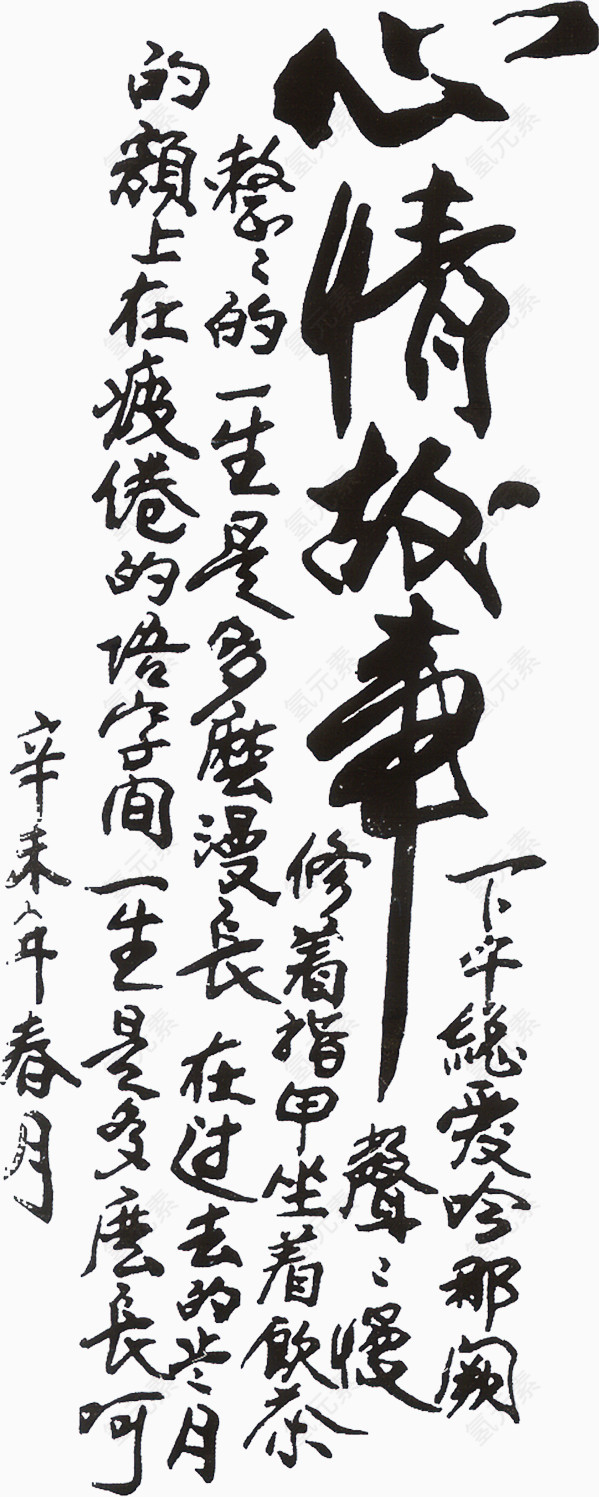 心情故事
下午總愛吟那闕
聲〻慢
修着指甲坐着飲茶
整〻的一生是多麼漫長 在过去的岁月
的額上在疲倦的语字间一生是多麼長呵
辛未年春月
氢元素